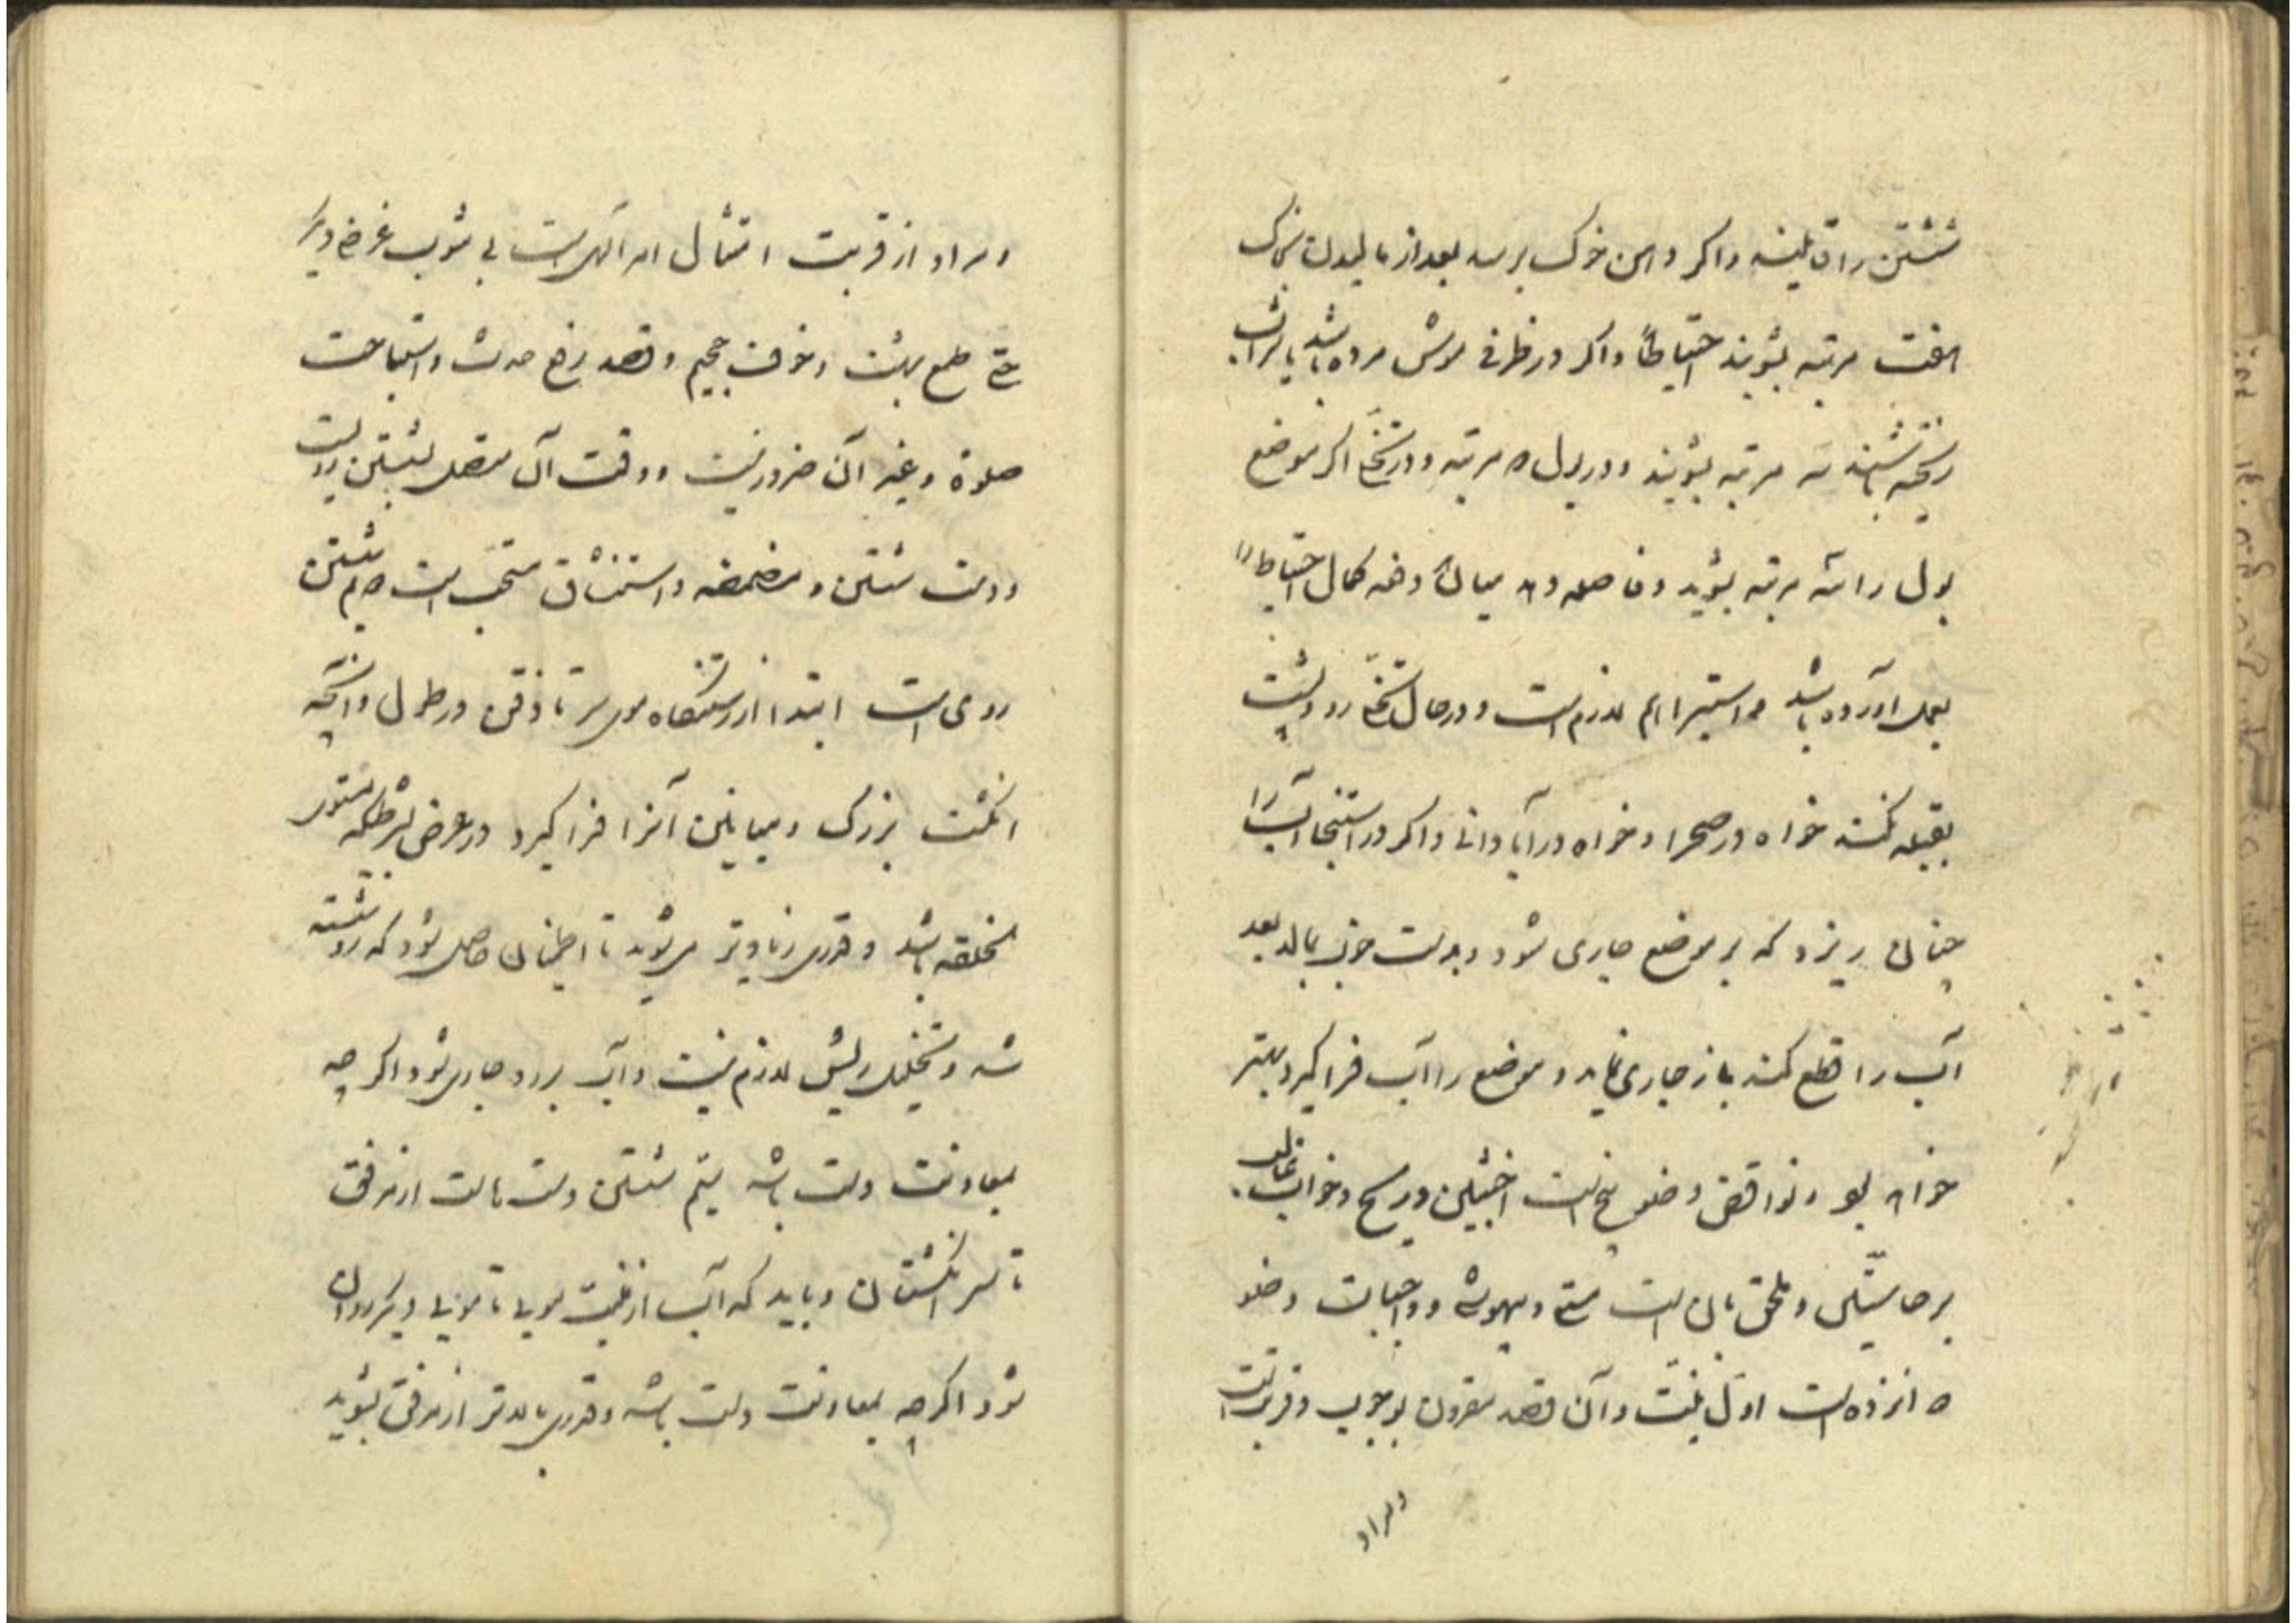 شستن را قایلند و اکر دهن خوک برسد بعد از مالیدن بخاک
هفت مرتبه بشویند احتیاطاً و اکر در ظرفی موش مرده باشد یا شراب
ریخته باشند سه مرتبه بشویند و در بول دو مرتبه و در تخلّی اکر موضع
بول را سه مرتبه بشوید و فاصله دهد میان دو دفعه کمال احتیاط را
بعمل آورده باشد و استبرا هم لازم است و در حال تخلّی رو و پشت
بقبله نکند خواه در صحرا و خواه در آبادانی و اکر در استنجا آب را
چنان ریزد که بر موضع جاری شود و بدست خوب بمالد بعد
آب را قطع کند باز جاری نماید و موضع را آب فرا کیرد بهتر
خواهد بود و نواقض وضو پنج است اخبثین و ریح و خواب غالب
بر حاسّتین و ملحق بآن است مستی و بیهوشی و واجبات وضو
دوانزده است اوّل نیّت و آن قصد مقرون بوجوب و قربتست
و مراد
و مراد از قربت امتثال امر الهی است بی شوب غرض دیکر
حتی طمع بهشت و خوف جحیم و قصد رفع حدث و استباحت
صلوة و غیر آن ضرور نیست و وقت آن متصل بشستن رو است
و دست شستن و مضمضه و استنشاق مستحب است دویم شستن
روی است ابتدا از رستنکاه موی سر تا ذقن در طول و آنچه
انکشت بزرک و میانین آنرا فرا کیرد در عرض بشرطیکه مستوی
الخلقه باشد و قدری زیادتر می شوید تا اطمینان حاصل شود که رو شسته
شد و تخلیل ریش لازم نیست و آب بر رو جاری شود اکر چه
بمعاونت دست باشد سیم شستن دست راست از مرفق
تا سر انکشتان و باید که آب از بیخ مویی تا مویی دیکر روان
شود اکر چه بمعاونت دست باشد و قدری بالاتر از مرفق بشوید